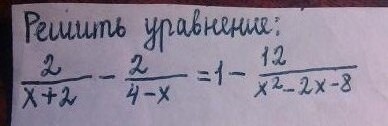 Решить уравнение:
2/(x+2) - 2/(4-x) = 1 - 12/(x²-2x-8)